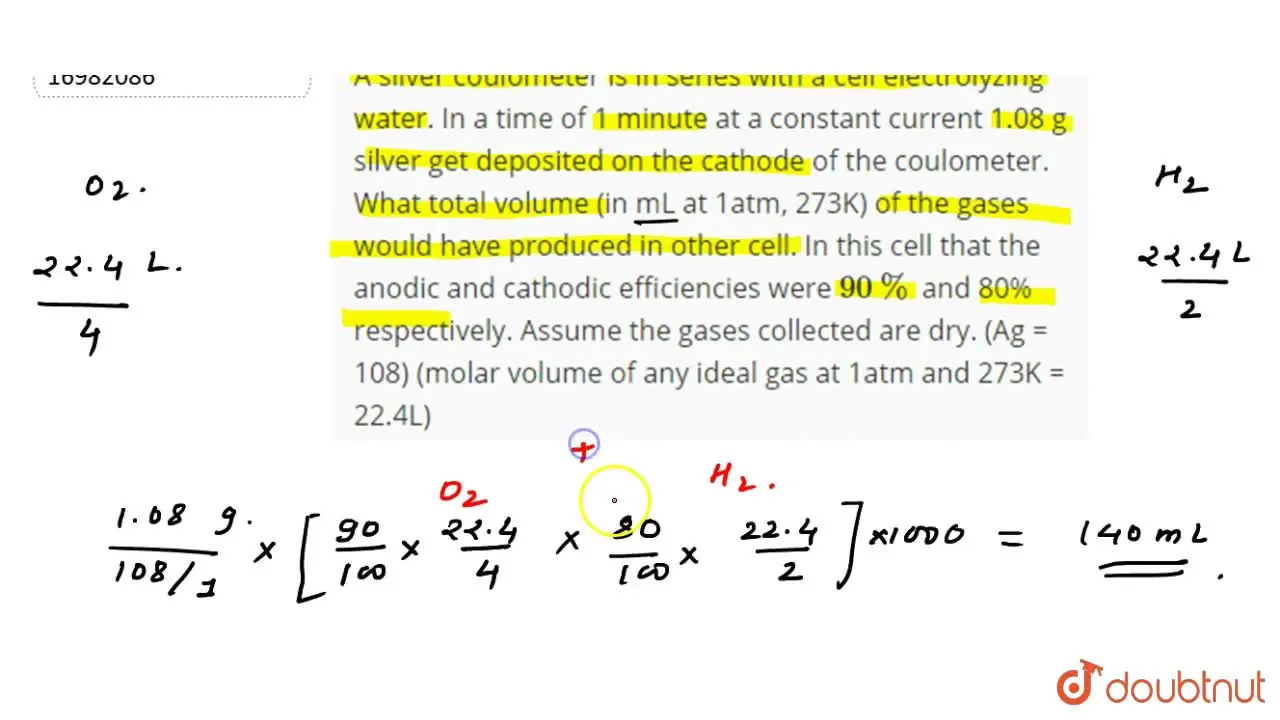 16982086
A silver coulometer is in series with a cell electrolyzing
water. In a time of 1 minute at a constant current 1.08 g
silver get deposited on the cathode of the coulometer.
What total volume (in mL at 1atm, 273K) of the gases
would have produced in other cell. In this cell that the
anodic and cathodic efficiencies were 90 % and 80%
respectively. Assume the gases collected are dry. (Ag =
108) (molar volume of any ideal gas at 1atm and 273K =
22.4L)
O2.
22.4 L.
4
H2
22.4 L
2
+
O2 H2.
1.08 g. × [ 90 × 22.4 × 80 × 22.4 ] × 1000 = 140 mL.
108/1 100 4 100 2
doubtnut